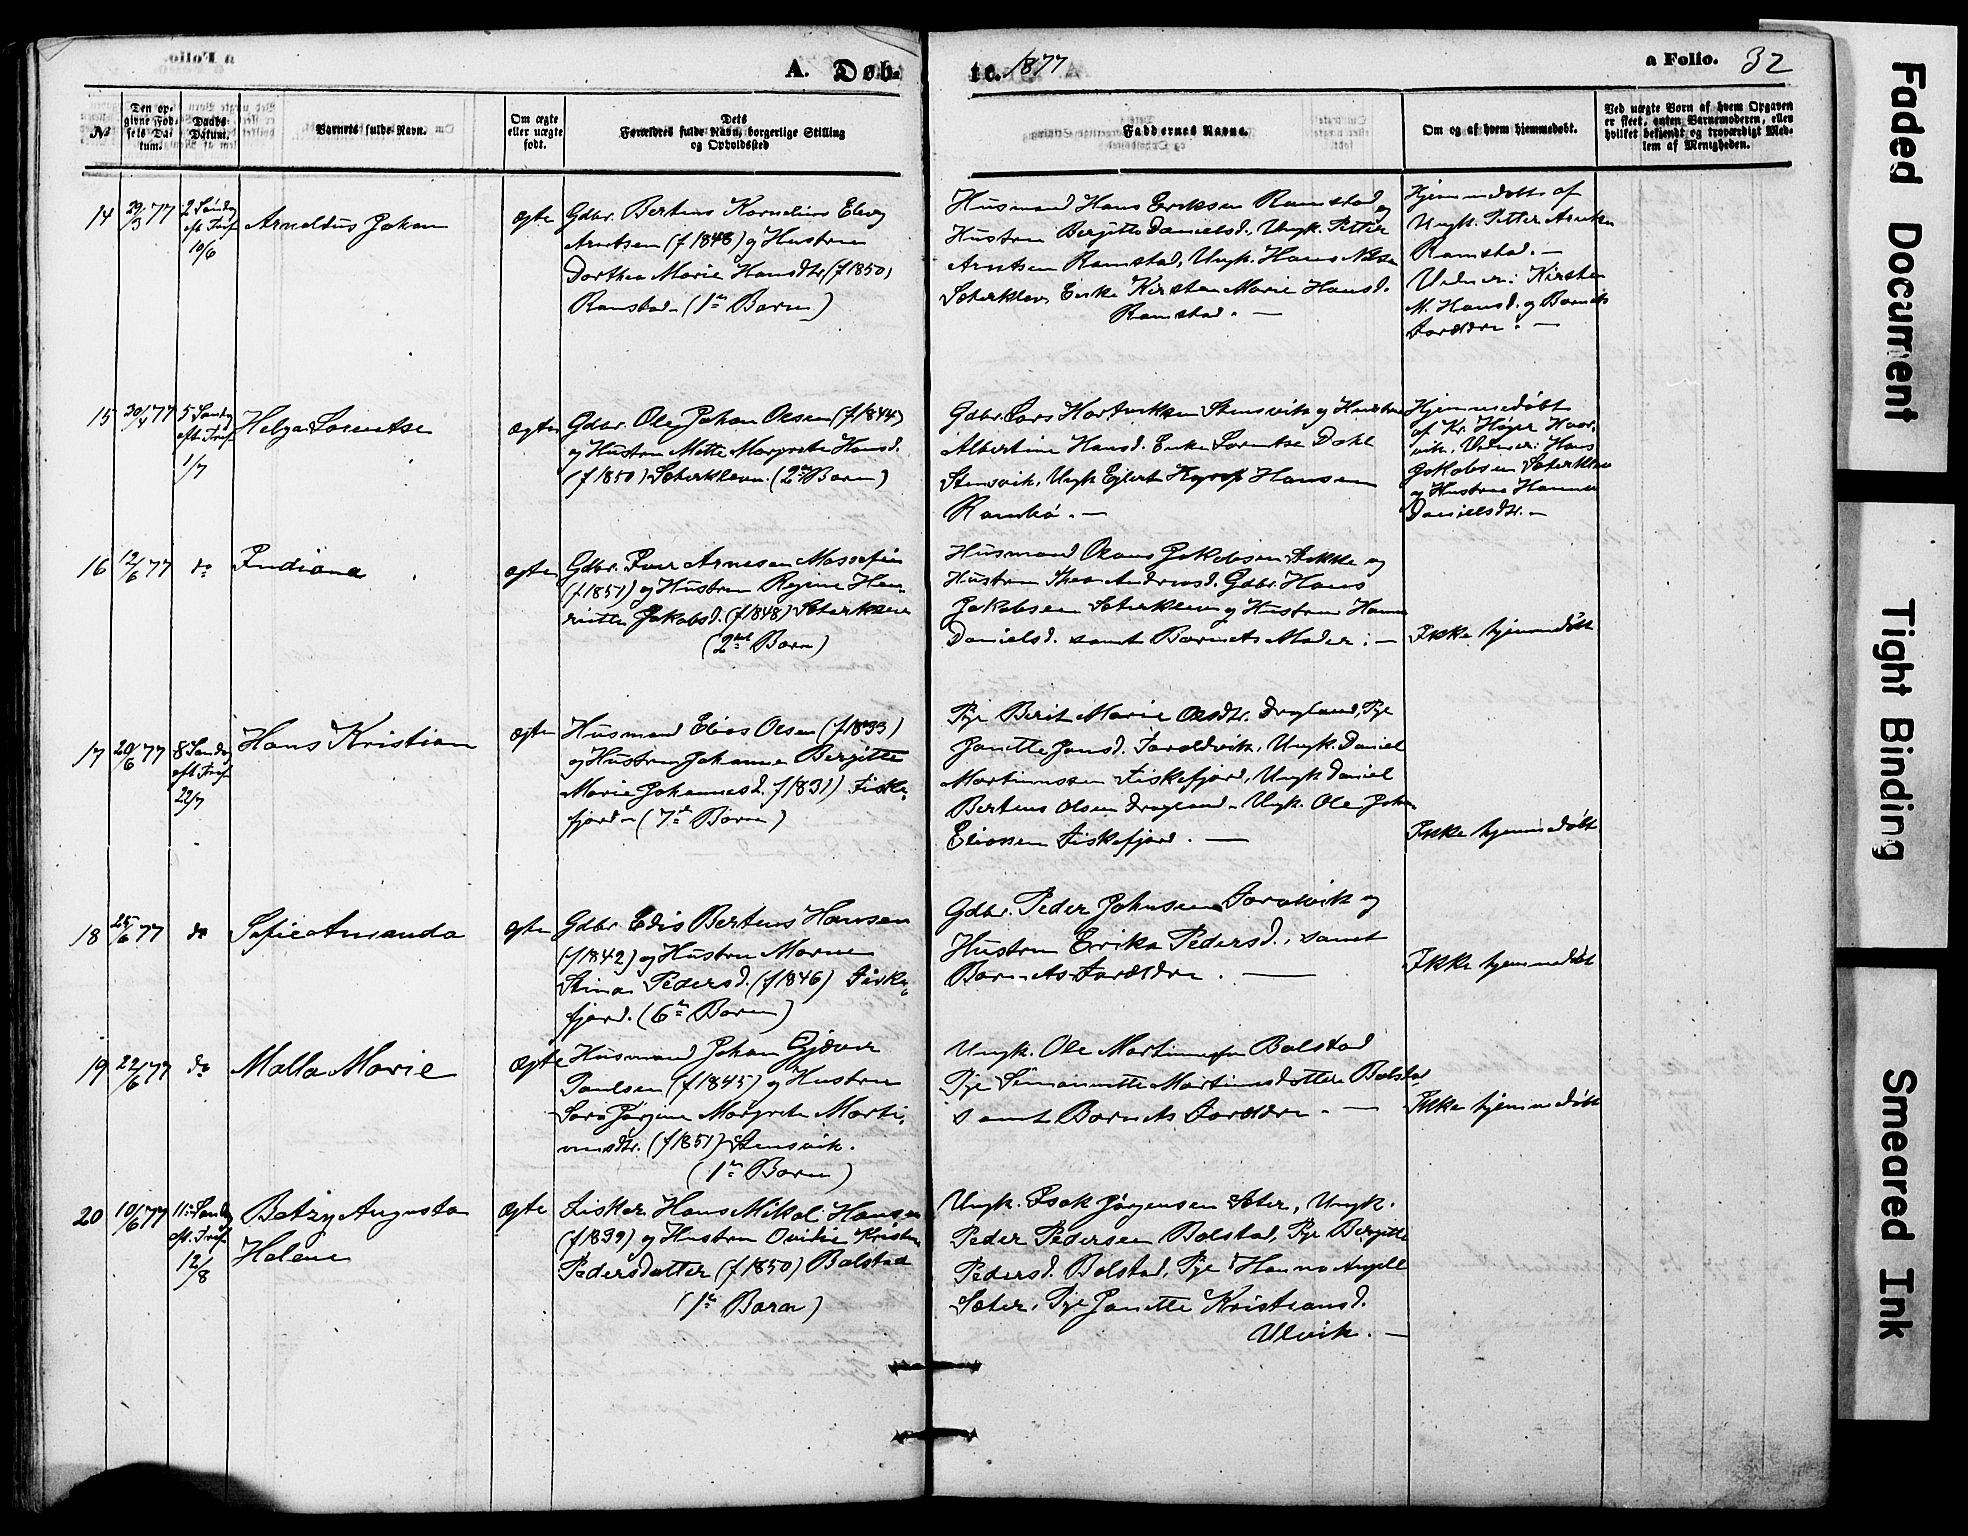 a Folio.
A. Døb-
te. 1877
a Folio. 32
№
Den op-
givne Fød-
sels Da-
tum.
Daabs-
Datum.
Barnets fulde Navn.
Om ægte
eller uægte
født.
Dets
Forældres fulde Navn, borgerlige Stilling
og Opholdssted
Faddernes Navne.
Om og af hvem hjemmedøbt.
Ved uægte Børn af hvem Opgaven
er skeet, enten Barnemoderen, eller
hvilket bekjendt og troværdigt Med-
lem af Menigheden.
14
29/3 77
2 Sønd.
eft. Tref.
10/6
Arnoldus Johan
ægte
Gdbr. Bertius Kornelius Elevy
Arntsen (f 1848) og Hustru
Dorthea Marie Hansdtr. (f 1850)
Ramstad - (1ste Barn)
Husmand Hans Eriksen Ramstad og
Hustru Bergitte Danielsd. Ungk. Petter
Arntsen Ramstad, Ungk. Hans Nilsen
Sæterklev, Enke Kirsten Marie Hansd.
Ramstad. —
Hjemmedøbt af
Ungk. Petter Arntsen
Ramstad. —
Vidner: Kirsten
M. Hansd. og Barnets
Forældre. —
15
30/4 77
5 Sønd.
eft. Tref.
1/7
Helga Lorentse
ægte
Gdbr. Ole Johan Olsen (f 1844)
og Hustru Mette Margrete Hansd.
(f 1850) Sæterkleven. (2det Barn)
Gdbr. Lars Hartviksen Stensvik og Hustru
Albertine Hansd. Enke Lorentse Dahl
Stensvik, Ungk. Ejlert Hansen
. —
Hjemmedøbt
af Kr. Høyer
vik. Vidner: Hans
Jakobsen Sæterklev
og Hustru Hanna
Danielsdtr. —
16
12/6 77
do
Indiana
ægte
Gdbr. Iver Arnesen
(f 1851) og Hustru Regine Hen-
ritte Jakobsd. (f 1848) Sæterklev
(2det Barn)
Husmand Jakobsen og
Hustru Thea Andreasd. Gdbr. Hans
Jakobsen Sæterklev og Hustru Hanna
Danielsd. samt Barnets Moder. —
Ikke hjemmedøbt
17
20/6 77
8 Sønd.
eft. Tref.
22/7
Hans Kristian
ægte
Husmand Elias Olsen (f 1833)
og Hustru Johanna Bergitte
Marie Johannesd. f 1831) Fiske-
fjord - (7de Barn)
Pige Berit Marie Olsdtr. Dragland, Pige
Janette Jonsd. , Ungk. Daniel
Martinussen Fiskefjord, Ungk. Daniel
Berteus Olsen Dragland - Ungk. Ole Johan
Eliassen Fiskefjord. —
Ikke hjemmedøbt
18
25/6 77
do
Sofie Amanda
ægte
Gdbr. Edis Berteus Hansen
(f 1842) og Hustru Maren
Stina Pedersd. (f 1846) Fiske-
fjord. (6te Barn)
Gdbr. Peder Johnsen og
Hustru Erika Pedersd., samt
Barnets Forældre. —
Ikke hjemmedøbt
19
22/6 77
do
Malla Marie
ægte
Husmand Johan Gjæver
Paulsen (f 1845) og Hustru
Sara Jørgine Margrete Marti-
nusdtr. (f 1851) Stensvik.
(1ste Barn)
Ungk. Ole Martinussen Bolstad
Pige Simonette Martinusdatter Bolstad
samt Barnets Forældre. —
Ikke hjemmedøbt
20
10/6 77
11te Sønd.
eft. Tref.
12/8
Betzy Augusta
Helene
ægte
Fisker Hans Mikal Hansen
(f 1839) og Hustru Ovidie Kristine
Pedersdatter (f 1850) Bolstad
(1ste Barn)
Ungk. Isak Jørgensen Sæter, Ungk.
Peder Pedersen Bolstad, Pige Bergitte
Pedersd. Bolstad, Pige Hanna
Sæter, Pige Janette Kristiansd.
Ulvik. —
Faded Document
Tight Binding
Smeared Ink